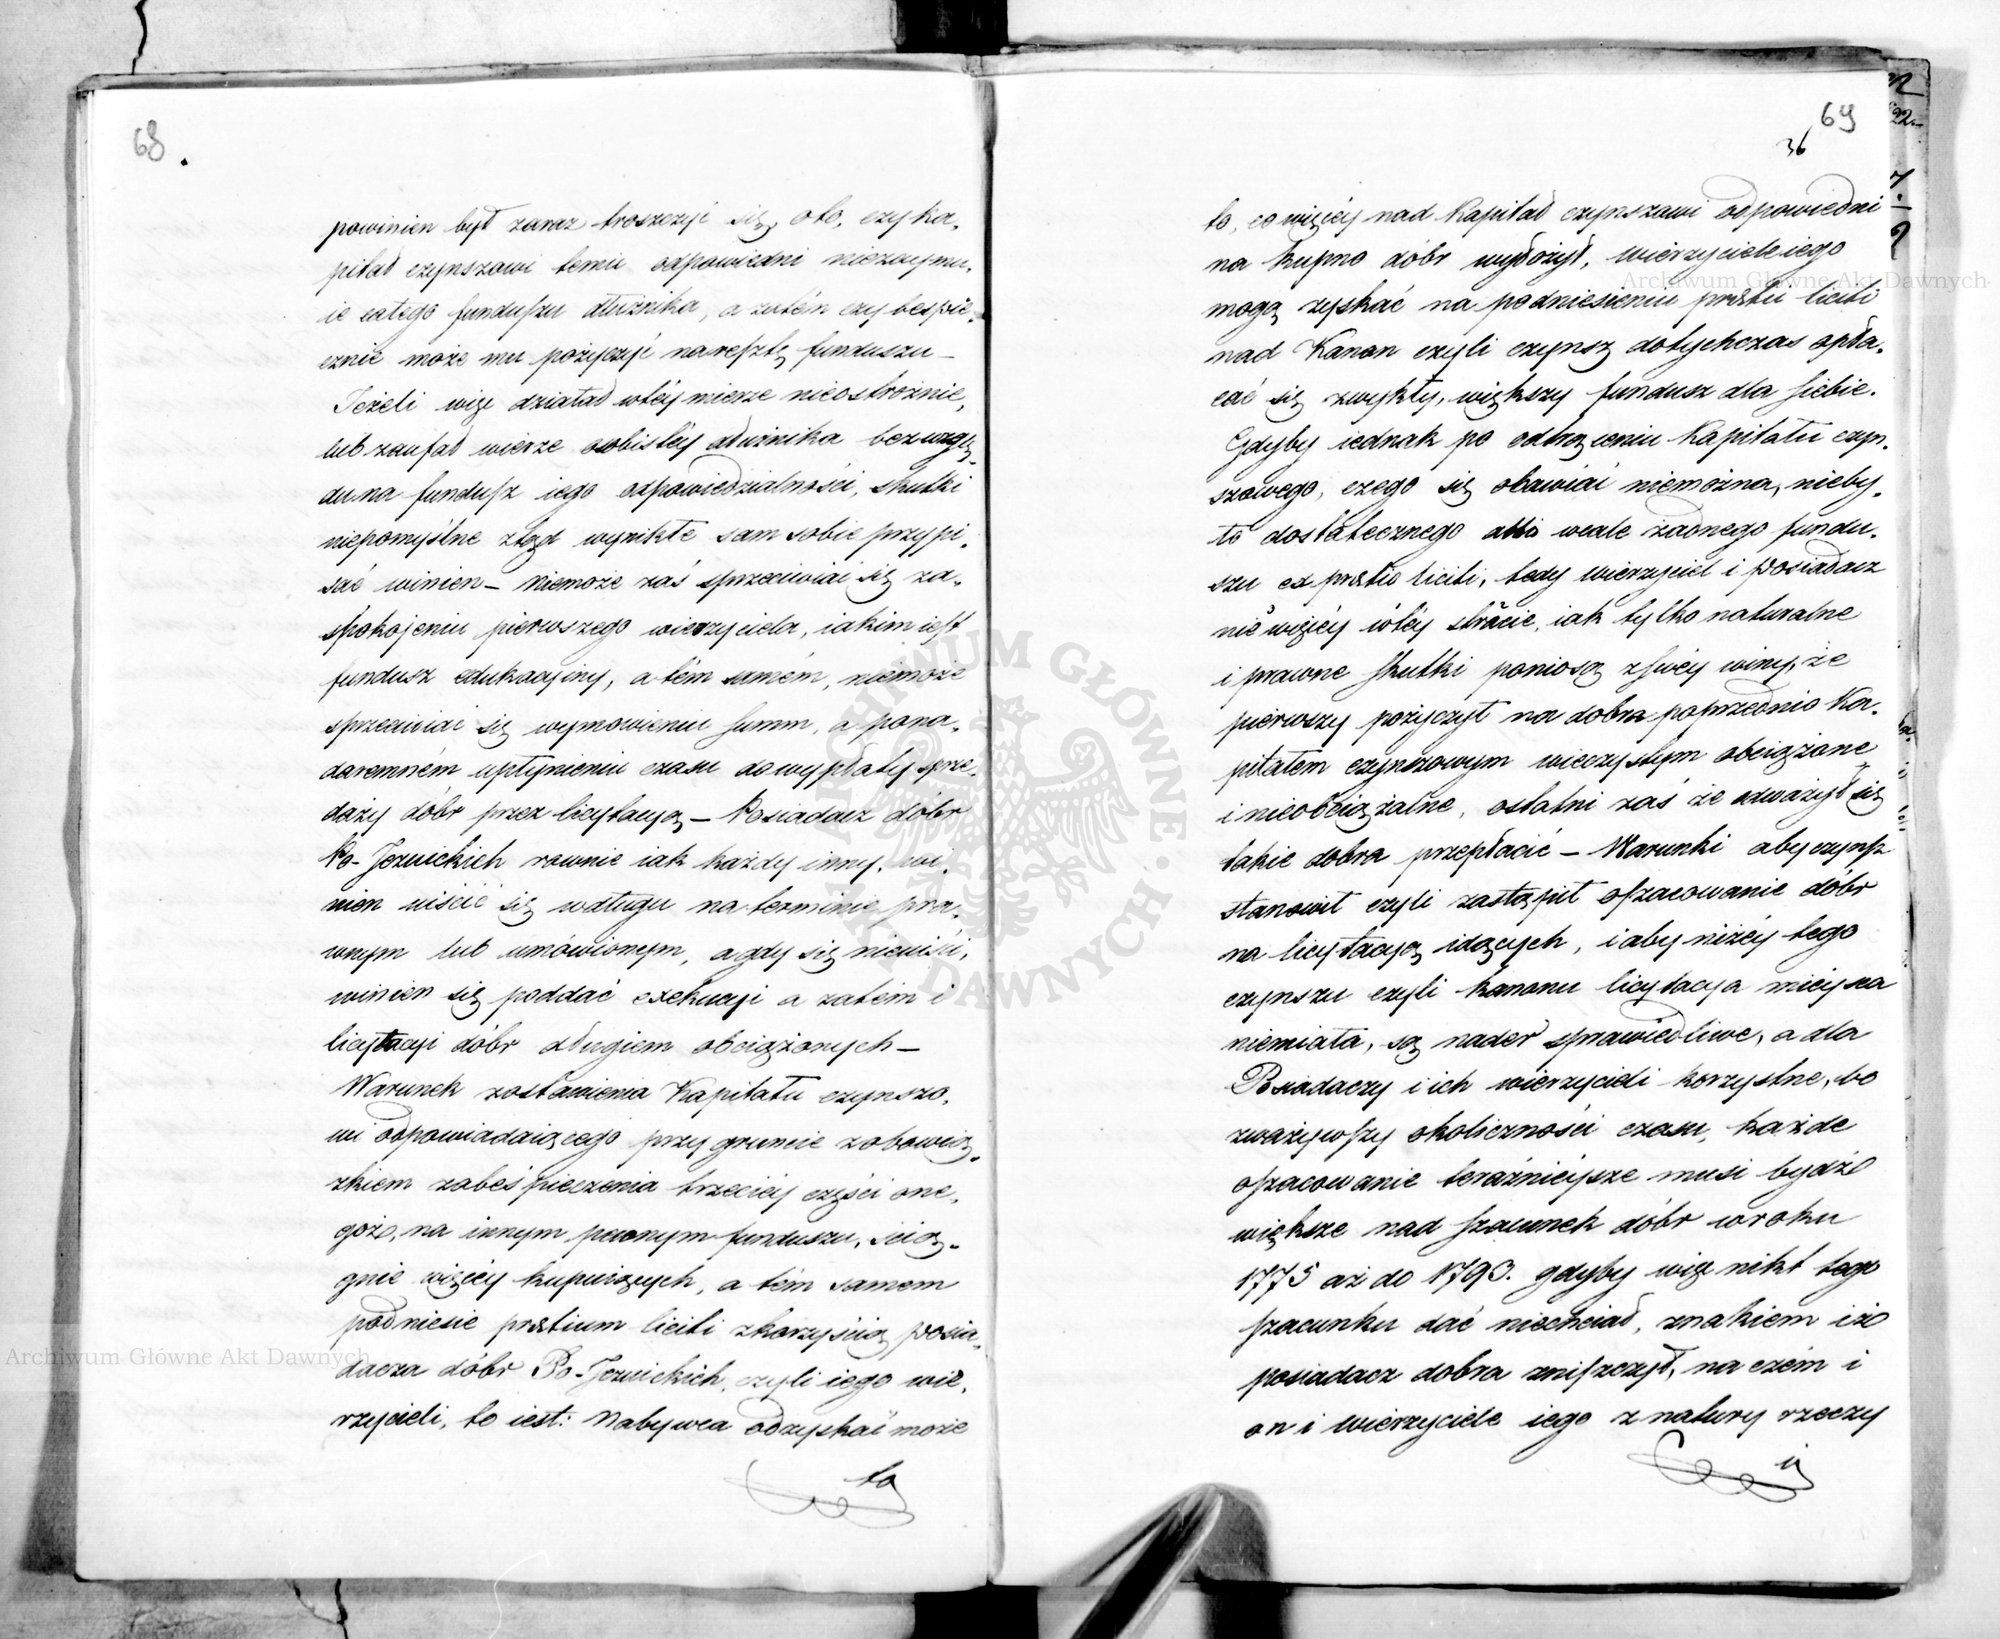 68.
powinien był zaraz troszczyć się, oto, czy ka,
pitał czynszowi temu odpowiedni niezaymu,
ie całego funduszu dłużnika, a zatém czy bespie,
cznie może mu pożyczyć naresztę funduszu —
Jeżeli więc działał wtéy mierze nieostrożnie,
lub zaufał wierze osobistéy dłużnika bez wzglę,
du na fundusz iego odpowiedzialności, skutki
niepomyślne ztąd wynikłe sam sobie przypi,
sać winien — niemoże zaś sprzeciwiać się za,
spokojeniu pierwszego wierzyciela, iakim iest
fundusz edukacyiny, a tém samém, niemoże
sprzeciwiać się wymówieniu summ, a pona,
daremném upłynieniu czasu do wypłaty sprze,
daży dóbr przez licytacyą — Posiadacz dóbr
Po-Jezuickich rownie iak każdy inny, wi,
nien uiścić się w długu na terminie pra,
wnym lub umówionym, a gdy się nieuiści,
winien się poddać exekucyi a zatém i
licytacyi dóbr długiem obciążonych —
Warunek zostawienia Kapitału czynszo,
wi odpowiadaiącego przy gruncie z obowią,
zkiem zabespieczenia trzeciéy części one,
goż, na innym pewnym funduszu, ścią,
gnie więcéy kupuiących, a tém samem
podniesie prætium liciti z korzyścią posia,
dacza dóbr Po-Jezuickich, czyli iego wie,
rzycieli, to iest: Nabywca odzyskać może
to
69
36
to, co więcéy nad Kapitał czynszowi odpowiedni
na kupno dóbr wyłożył, wierzyciele iego
mogą zyskać na podniesieniu prætii liciti
nad Kanon czyli czynsz dotychczas opła,
cać się zwykły, większy fundusz dla siebie.
Gdyby iednak po odtrąceniu Kapitału czyn,
szowego, czego się obawiać niemożna, nieby,
ło dostatecznego albo wcale żadnego fundu,
szu ex prætio liciti, tedy wierzyciel i posiadacz
nic więcéy w téy stracie, iak tylko naturalne
i prawne skutki poniosą z swéy winy, że
pierwszy pożyczył na dobra poprzednio Ka,
pitałem czynszowym wieczystym obciążone
i nieobciążalne, ostatni zaś że odważył się
takie dobra przepłacić — Warunki aby czynsz
stanowił czyli zastąpił oszacowanie dóbr
na licytacyą idących, i aby niżéy tego
czynszu czyli kanonu licytacya mieysca
niemiała, są nader sprawiedliwe, a dla
Posiadaczy i ich wierzycieli korzystne, bo
zważywszy okoliczności czasu, każde
oszacowanie teraźnieysze musi bydź
większe nad szacunek dóbr w roku
1775 aż do 1793. gdyby więc nikt tego
szacunku dać niechciał, znakiem iż
posiadacz dobra zniszczył, na czém i
on i wierzyciele iego z natury rzeczy
Archiwum Główne Akt Dawnych
Archiwum Główne Akt Dawnych
ARCHIWUM GŁÓWNE · AKT DAWNYCH ·